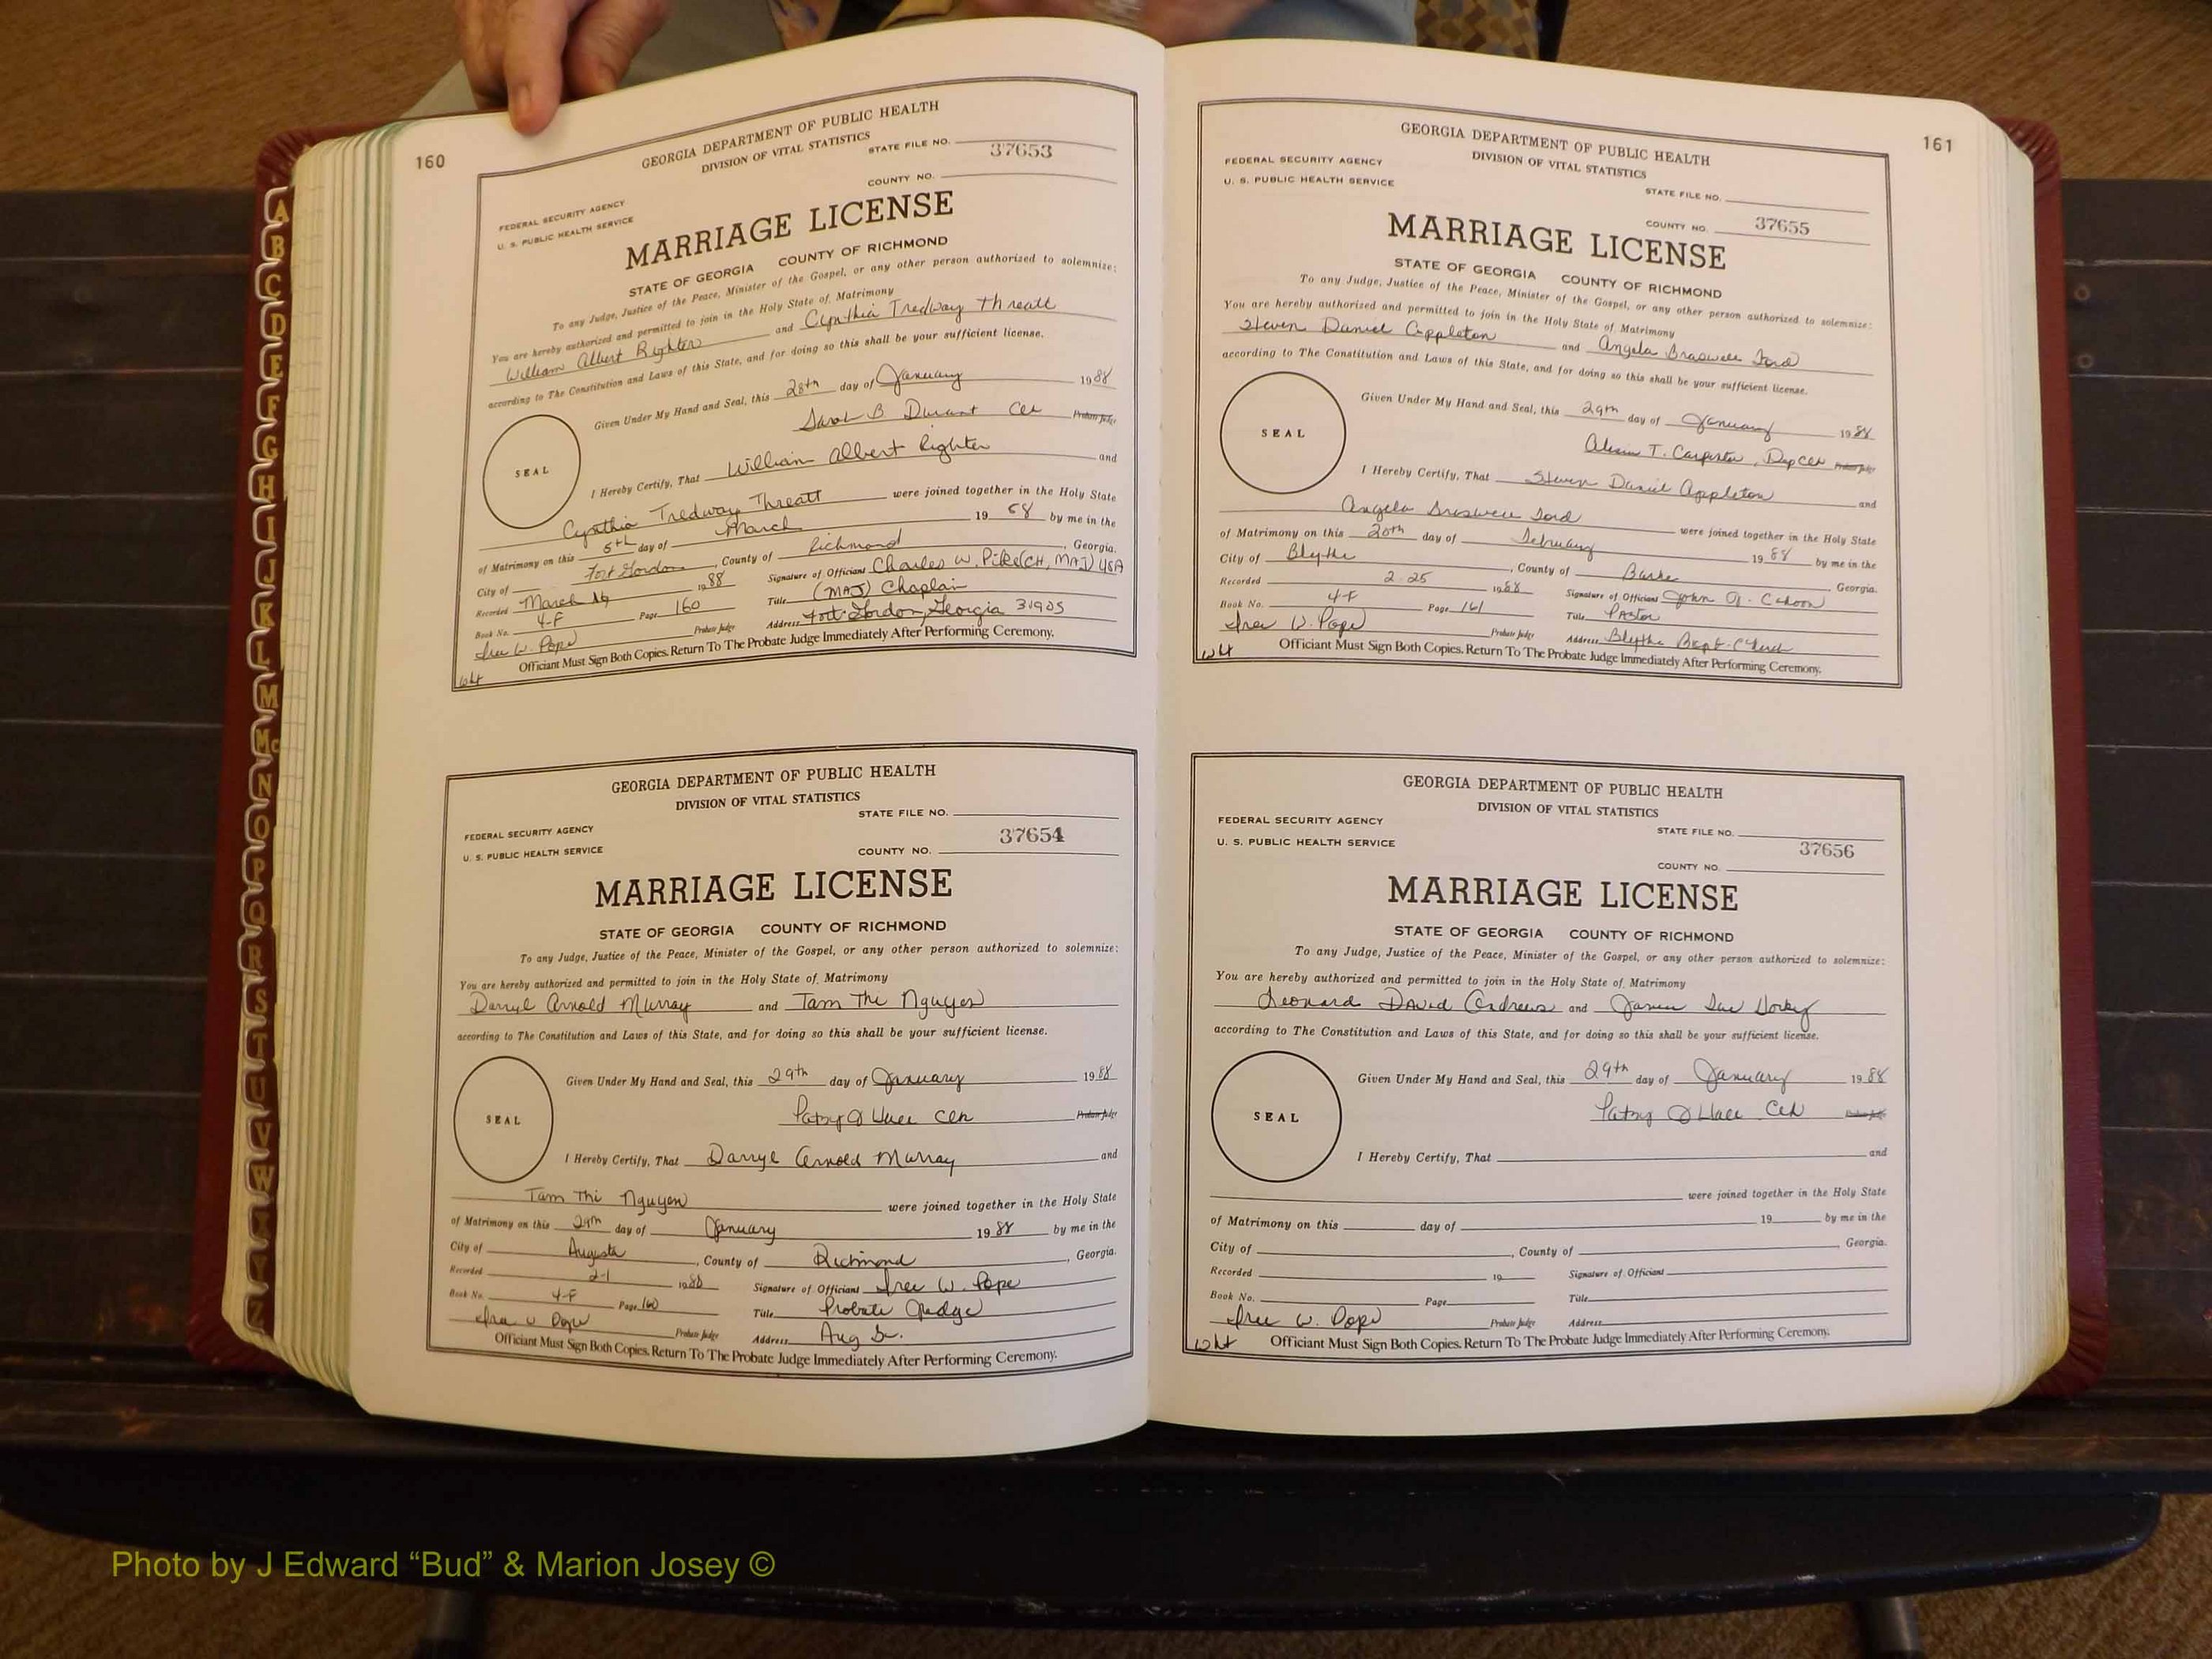 160
GEORGIA DEPARTMENT OF PUBLIC HEALTH
DIVISION OF VITAL STATISTICS
STATE FILE NO. 37653
COUNTY NO.
FEDERAL SECURITY AGENCY
U. S. PUBLIC HEALTH SERVICE
MARRIAGE LICENSE
STATE OF GEORGIA COUNTY OF RICHMOND
To any Judge, Justice of the Peace, Minister of the Gospel, or any other person authorized to solemnize:
You are hereby authorized and permitted to join in the Holy State of Matrimony
William Albert Righter and Cynthia Tredway Threatt
according to The Constitution and Laws of this State, and for doing so this shall be your sufficient license.
Given Under My Hand and Seal, this 28th day of January 1988
Sarah B Durant Clk Probate Judge
SEAL
I Hereby Certify, That William Albert Righter and
Cynthia Tredway Threatt were joined together in the Holy State
of Matrimony on this 5th day of March 19 88 by me in the
City of Fort Gordon, County of Richmond, Georgia.
Recorded March 1988 Signature of Officiant Charles W. Pike (CH, MAJ) USA
Book No. 4-F Page 160 Title (MAJ) Chaplain
Probate Judge Address Fort Gordon, Georgia 31905
W. Pope
Officiant Must Sign Both Copies. Return To The Probate Judge Immediately After Performing Ceremony.
Wht
GEORGIA DEPARTMENT OF PUBLIC HEALTH
DIVISION OF VITAL STATISTICS
STATE FILE NO.
FEDERAL SECURITY AGENCY
37654
U. S. PUBLIC HEALTH SERVICE
COUNTY NO.
MARRIAGE LICENSE
STATE OF GEORGIA COUNTY OF RICHMOND
To any Judge, Justice of the Peace, Minister of the Gospel, or any other person authorized to solemnize:
You are hereby authorized and permitted to join in the Holy State of Matrimony
Darryl Arnold Murray and Tam Thi Nguyen
according to The Constitution and Laws of this State, and for doing so this shall be your sufficient license.
Given Under My Hand and Seal, this 29th day of January 1988
Patsy Clk Probate Judge
SEAL
I Hereby Certify, That Darryl Arnold Murray and
Tam Thi Nguyen were joined together in the Holy State
of Matrimony on this 29th day of January 1988 by me in the
City of Augusta, County of Richmond, Georgia.
Recorded 2-1 1988 Signature of Officiant W. Pope
Book No. 4-F Page 160 Title Probate Judge
Probate Judge Address Aug Ga.
Officiant Must Sign Both Copies. Return To The Probate Judge Immediately After Performing Ceremony.
161
GEORGIA DEPARTMENT OF PUBLIC HEALTH
DIVISION OF VITAL STATISTICS
FEDERAL SECURITY AGENCY
U. S. PUBLIC HEALTH SERVICE
STATE FILE NO.
COUNTY NO. 37655
MARRIAGE LICENSE
STATE OF GEORGIA COUNTY OF RICHMOND
To any Judge, Justice of the Peace, Minister of the Gospel, or any other person authorized to solemnize:
You are hereby authorized and permitted to join in the Holy State of Matrimony
Steven Daniel Appleton and Angela Braswell Ford
according to The Constitution and Laws of this State, and for doing so this shall be your sufficient license.
Given Under My Hand and Seal, this 29th day of January 1988
T. Carpenter, Dep Clk Probate Judge
SEAL
I Hereby Certify, That Steven Daniel Appleton and
Angela Braswell Ford were joined together in the Holy State
of Matrimony on this 20th day of February 1988 by me in the
City of Blythe, County of Burke Georgia.
Recorded 2-25 1988 Signature of Officiant John
Book No. 4-F Page 161 Title Pastor
W. Pope Probate Judge Address Blythe Bapt. Church
Wht
Officiant Must Sign Both Copies. Return To The Probate Judge Immediately After Performing Ceremony.
GEORGIA DEPARTMENT OF PUBLIC HEALTH
DIVISION OF VITAL STATISTICS
FEDERAL SECURITY AGENCY
STATE FILE NO.
U. S. PUBLIC HEALTH SERVICE
37656
COUNTY NO.
MARRIAGE LICENSE
STATE OF GEORGIA COUNTY OF RICHMOND
To any Judge, Justice of the Peace, Minister of the Gospel, or any other person authorized to solemnize:
You are hereby authorized and permitted to join in the Holy State of Matrimony
Leonard David Andrews and Sue
according to The Constitution and Laws of this State, and for doing so this shall be your sufficient license.
Given Under My Hand and Seal, this 29th day of January 1988
Patsy Clk Probate Judge
SEAL
I Hereby Certify, That and
were joined together in the Holy State
of Matrimony on this day of 19 by me in the
City of , County of Georgia.
Recorded 19 Signature of Officiant
Book No. Page Title
W. Pope Probate Judge Address
Wht
Officiant Must Sign Both Copies. Return To The Probate Judge Immediately After Performing Ceremony.
A
B
C
D
E
F
G
H
I
J
K
L
M
Mc
N
O
P
Q
R
S
T
U
V
W
X
Y
Z
Photo by J Edward “Bud” & Marion Josey ©